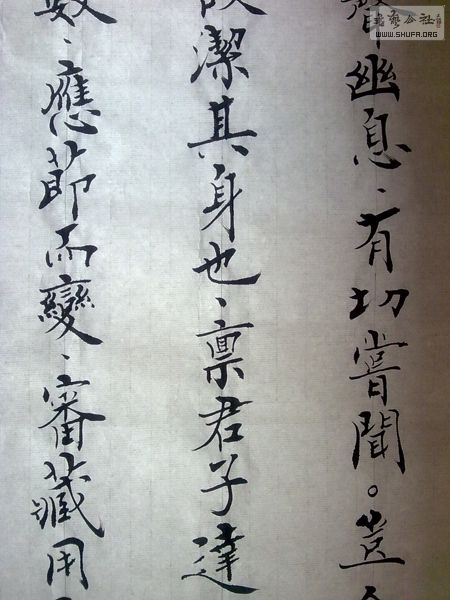 聲幽息、有切嘗聞。豈
潔其身也、禀君子達
數、應節而變、審藏用
書藝公社
WWW.SHUFA.ORG